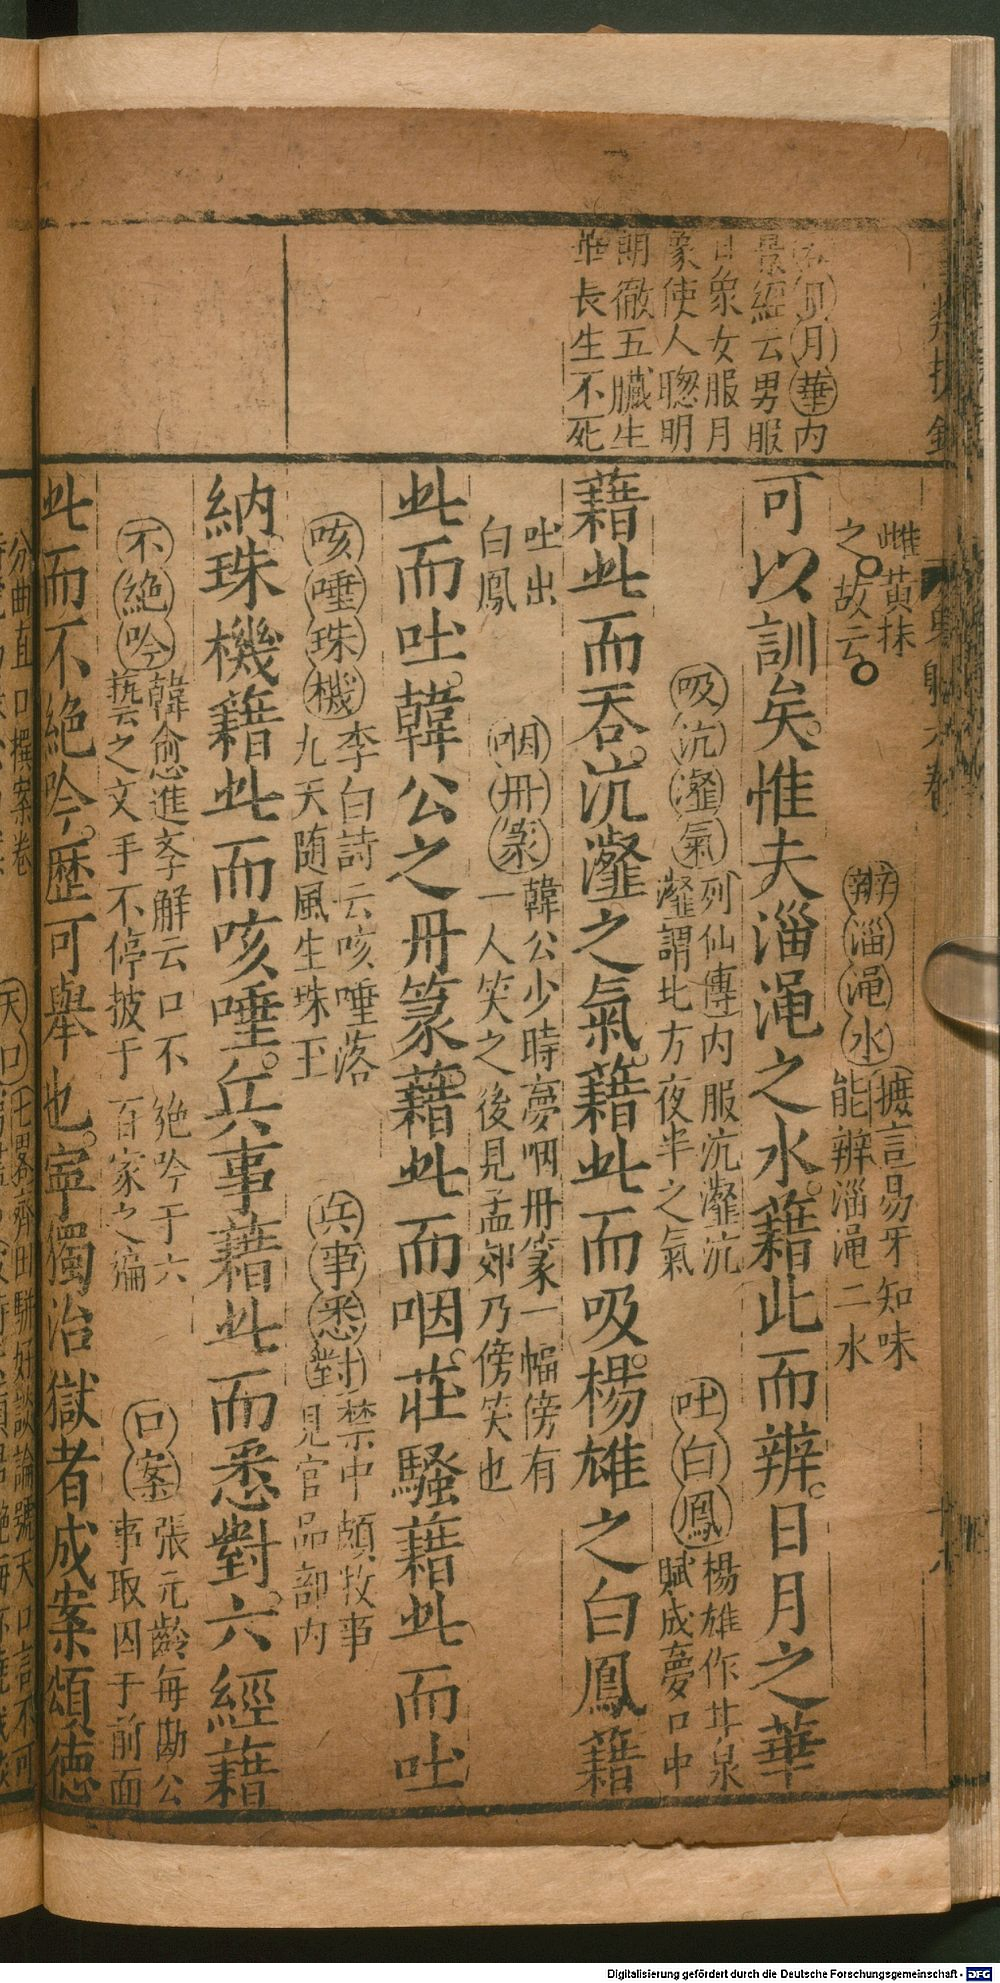 月華內
景經云男服
日象女服月
象使人聰明
朗徹五臟生
華長生不死
雌黃抹
之故云
辨淄澠水
據言易牙知味
能辨淄澠二水
可以訓矣惟夫淄澠之水藉此而辨日月之華
吸沆瀣氣
列仙傳內服沆瀣沆
瀣謂北方夜半之氣
吐白鳳
楊雄作甘泉
賦成夢口中
藉此而吞沆瀣之氣藉此而吸楊雄之白鳳藉
吐出
白鳳
咽丹篆
韓公少時夢咽丹篆一幅傍有
一人笑之後見孟郊乃傍笑也
此而吐韓公之丹篆藉此而咽莊騷藉此而吐
咳唾珠機
李白詩云咳唾落
九天隨風生珠玉
兵事悉對
禁中頗牧事
見官品部內
納珠機藉此而咳唾兵事藉此而悉對六經藉
不絕吟
韓愈進孝解云口不絕吟于六
藝之文手不停披于百家之編
口案
張元齡每勘公
事取囚于前面
此而不絕吟歷可舉也寧獨治獄者成案頌德
分曲直口撰案卷
天口
齊田駢好談論號天口言不可
Digitalisierung gefördert durch die Deutsche Forschungsgemeinschaft - DFG